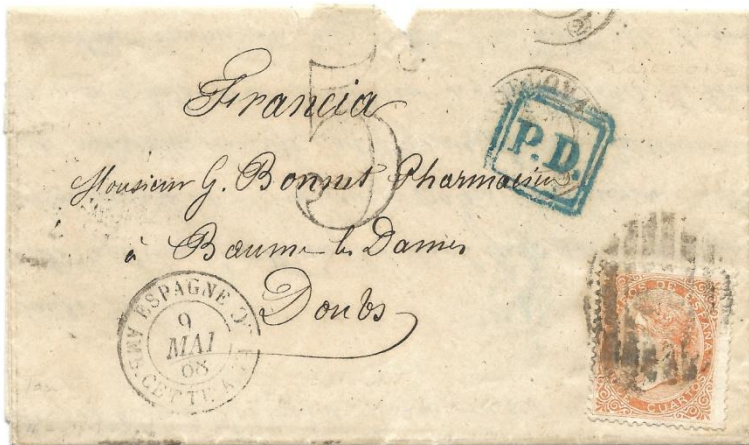 Francia
5
P.D.
Monsieur G. Bonnet Pharmacien
à Baume les Dames
Doubs
ESPAGNE
9
MAI
68
AMB. CETTE A T.
DE ESPAÑA
CUARTOS